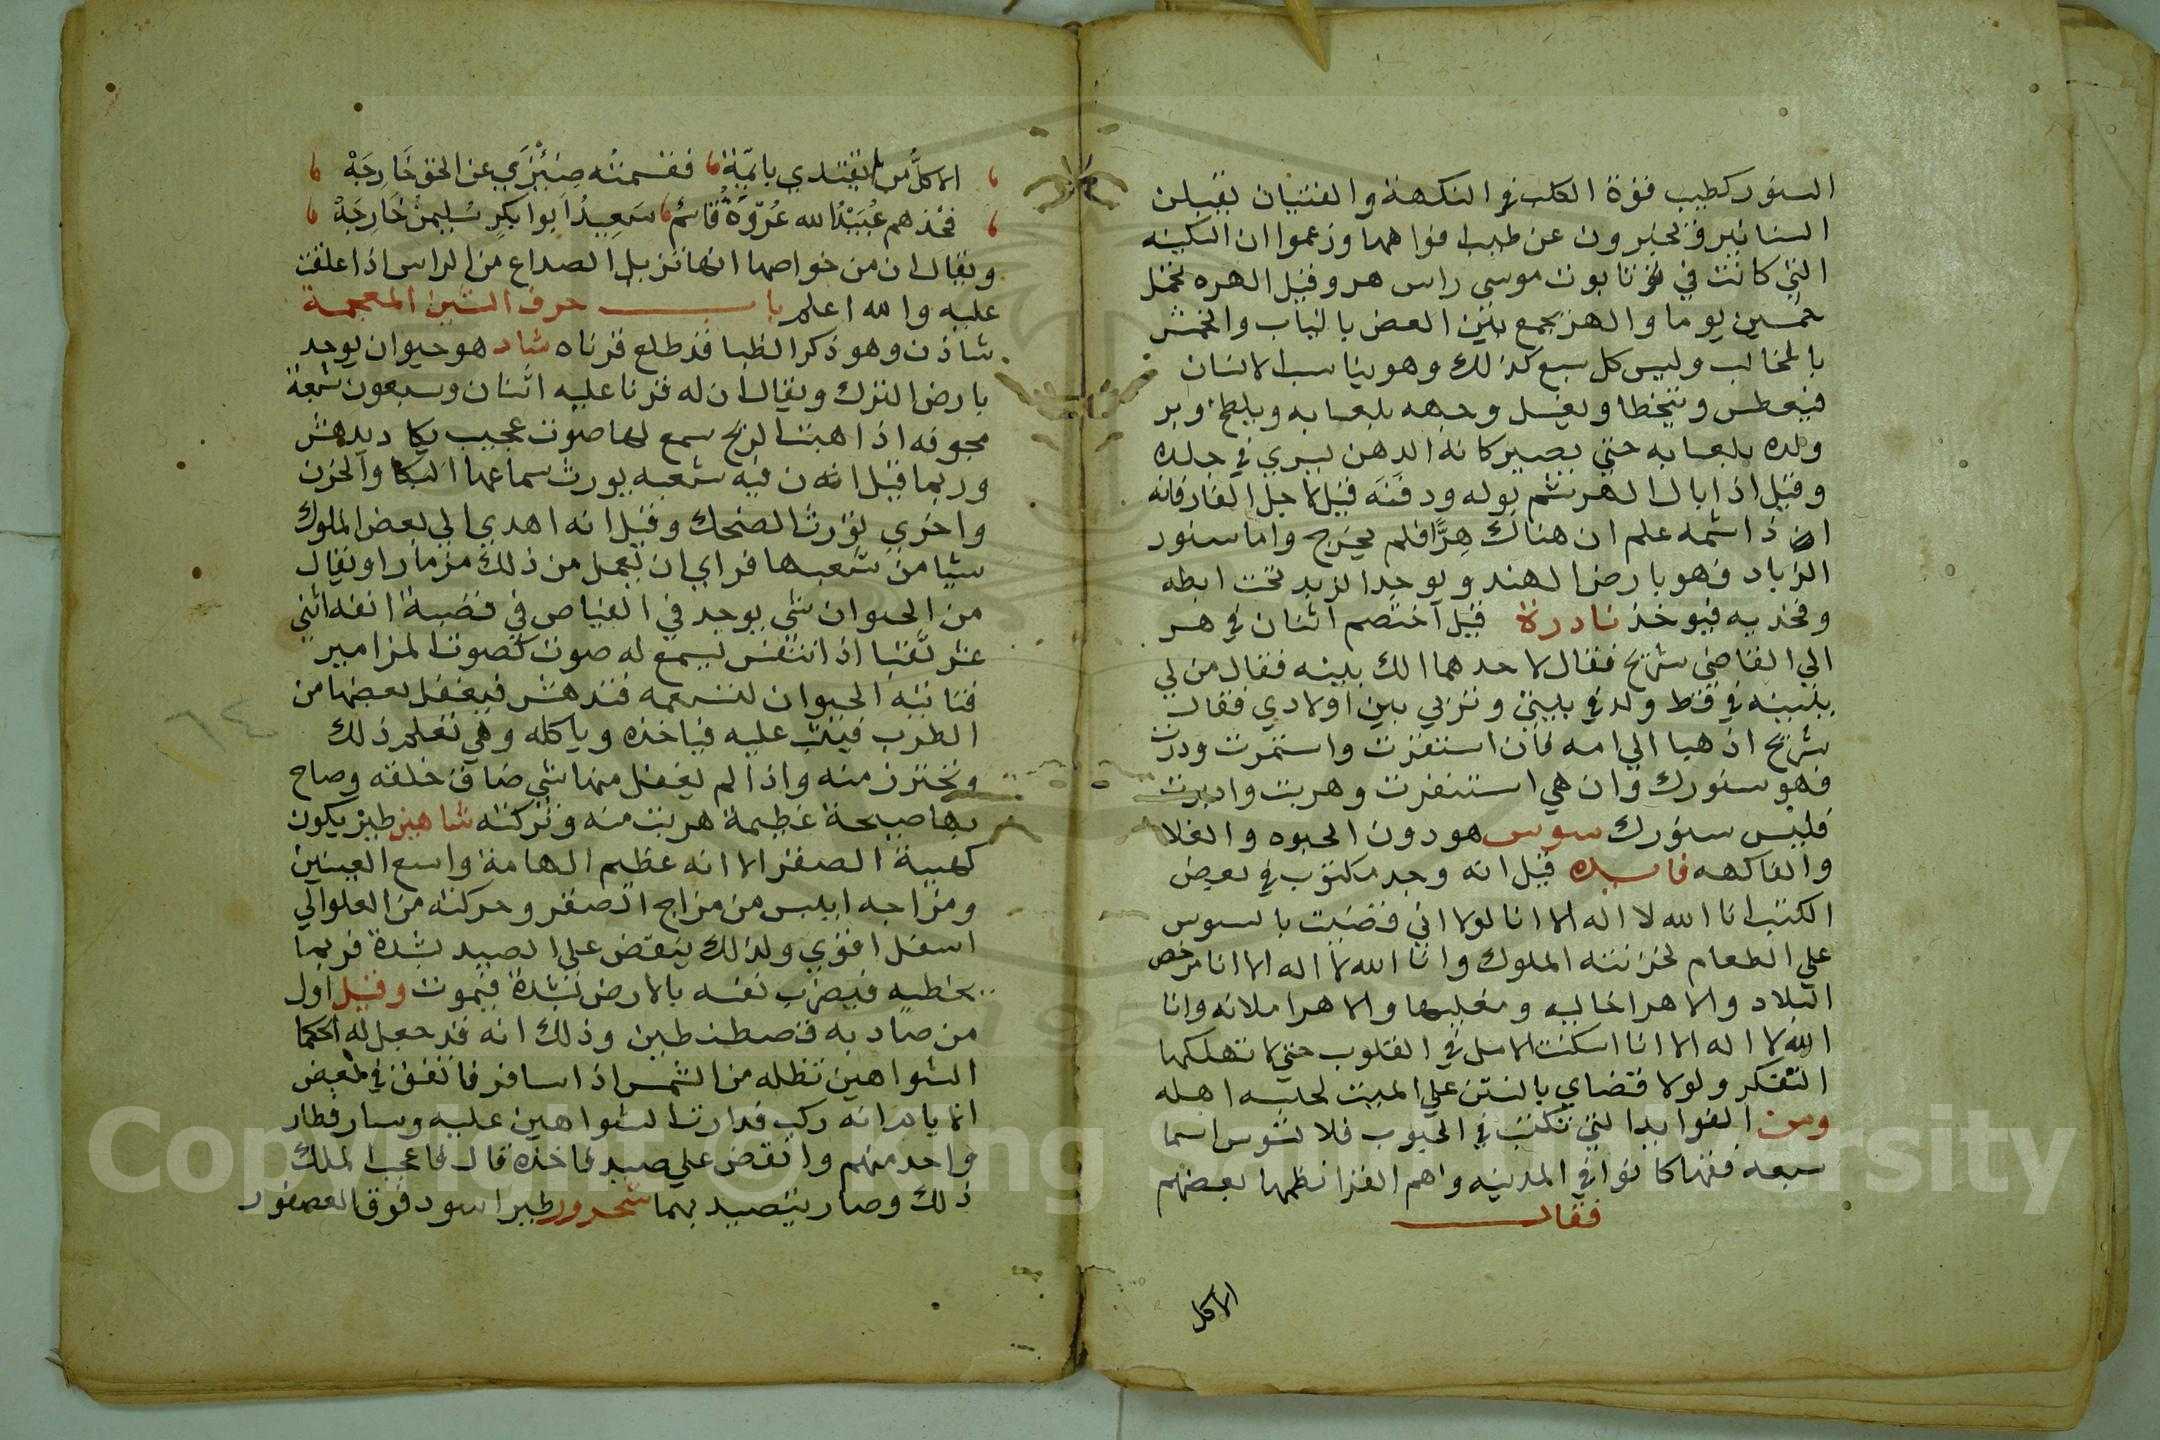 السنور كطيب فوة الكلب في النكهة والفتيان يقبلن
السنانير فيخبرون عن طيب فواهها وزعموا ان السكينه
التي كانت في تابوت موسى راس هر وقيل الهره تحمل
خمسين يوما والهر يجمع بين العض بالناب والخمش
بالمخالب وليس كل سبع كذلك وهو يناسب الانسان
فيعطس ويتخطا ويغسل وجهه بلعابه ويلطخ وبر
ولده بلعابه حتي يصير كانه الدهن يسري في جلده
وقيل اذا بال الهر شم بوله ودفنه قيل لاجل الفار فانه
اذا شمه علم ان هناك هِرًّا فلم يخرج واما سنور
الزباد فهو بارض الهند ويوجد الزبد تحت ابطه
وفخذيه فيوخذ نادرة قيل اختصم اثنان في هر
الي القاضي شريح فقال لاحدهما الك بينه فقال من لي
ببينه في قط ولد في بيتي وتربي بين اولادي فقال
شريح اذهبا الي امه فان استقرت واستمرت ودرت
فهو سنورك وان هي استنفرت وهربت وادبرت
فليس سنورك سوس هو دون الحبوه والغلا
والفاكهه فايده قيل انه وجد مكتوب في بعض
الكتب انا الله لا اله الا انا لولا اني قضيت بالسوس
علي الطعام لخزنته الملوك وانا الله لا اله الا انا مرخص
البلاد والاهرا خاليه ومغليها والاهرا ملانه وانا
الله لا اله الا انا اسكنت الامل في القلوب حتي لا تهلكها
التفكر ولولا قضاي بالنتن علي الميت لحبسه اهله
ومن الفوايد التي تكتب في الحبوب فلا تسوس اسما
سبعه فقها كانوا في المدينه واهم الفرا نظمها بعضهم
فقال
الاكل
الا كلُّ من لا يقتدي بايمّة فقسمته ضِيْزَي عن الحق خَارِجَهْ
فخذهم عُبَيْدُ الله عُرْوَةُ قَاسِم سَعِيدُ ابوا بكرٍ سُلِيمنُ خَارِجَهْ
ويقال ان من خواصها انها تزيل الصداع من الراس اذا علقت
عليه والله اعلم باب حرف الشين المعجمة
شاذن وهو ذكر الظبا قد طلع قرناه شاد هو حيوان يوجد
بارض الترك ويقال ان له قرنا عليه اثنان وسبعون شعبة
مجوفه اذا هبت الريح سمع لها صوت عجيب يكاد يدهش
وربما قيل انه ن فيه شعبه يورث سماعها البكا والحزن
واخري تورث الضحك وقيل انه اهدي الي بعض الملوك
شيا من شعبها فراي ان يعمل من ذلك مزمارا ويقال
من الحيوان شي يوجد في الغياض في قصبة انفه اثني
عشر ثقبا اذا تنفس يسمع له صوت كصوت المزامير
فتاتيه الحيوان لتسمعه فتدهش فيغفل بعضها من
الطرب فيثب عليه فياخذه وياكله وهي تعلم ذلك
وتحترز منه واذا لم يغفل منها شي ضاق خلقه وصاح
بها صيحة عظيمة هربت منه وتركته شاهين طير يكون
كهيية الصقر الا انه عظيم الهامة واسع العينين
ومزاجه ايبس من مزاج الصقر وحركته من العلو الي
اسفل اقوي ولذلك ينقض علي الصيد بشدة فربما
يخطيه فيضرب نفسه بالارض بشدة فيموت وقيل اول
من صاد به قصطنطين وذلك انه قد جعل له الحكما
الشواهين تظله من الشمس اذا سافر فاتفق في بعض
الايام انه ركب فدارت الشواهين عليه وسار فطار
واحد منهم وانقض علي صيد فاخذه قال فاعجب الملك
ذلك وصار يتصيد بهما شحرور طير اسود فوق العصفور